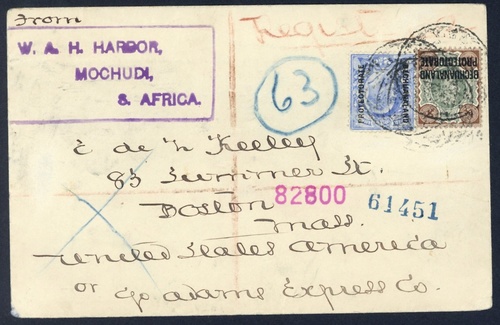 From
W. A. H. HARBOR,
MOCHUDI,
S. AFRICA.
Regist
63
BECHUANALAND
PROTECTORATE
BECHUANALAND
PROTECTORATE
E de N Keeley
83 Summer St.
Boston
82800
61451
Mass.
United States America
or c/o Adams Express Co.